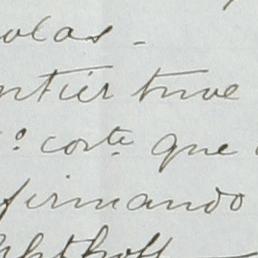 olas -
ntier tuve
º corte que
firmando